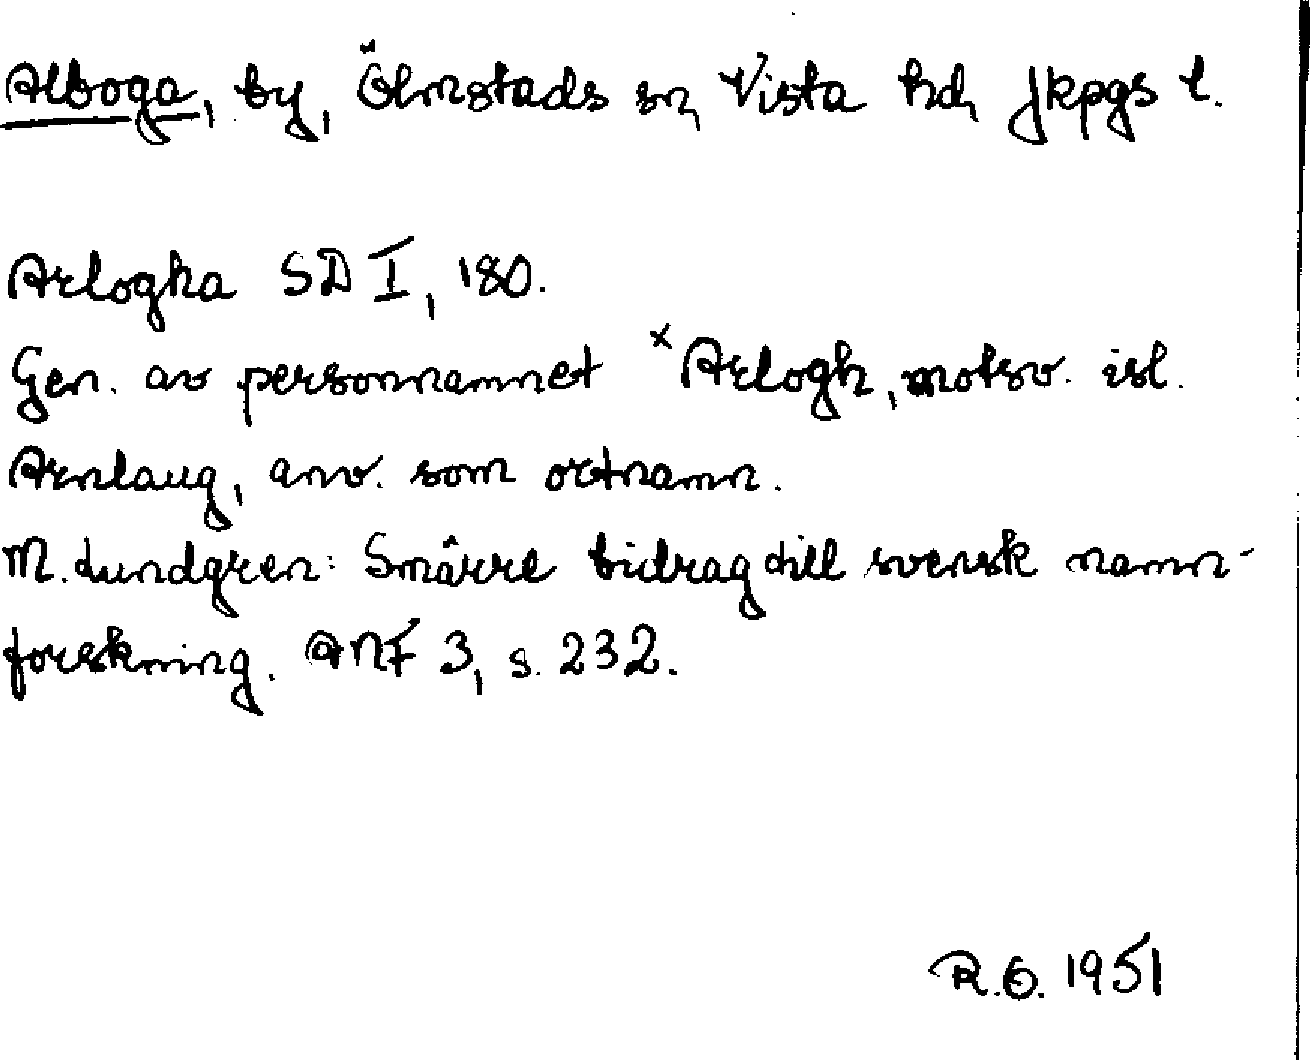 Alboga, by, Ölmstads sn, Vista hd, Jkpgs l.
Arlogha SD I, 180.
Gen. av personnamnet ˣArlogh, motsv. isl.
Arnlaug, anv. som ortnamn.
M. Lundgren: Smärre bidrag till svensk namn-
forskning. ANF 3, s. 232.
R.O. 1951